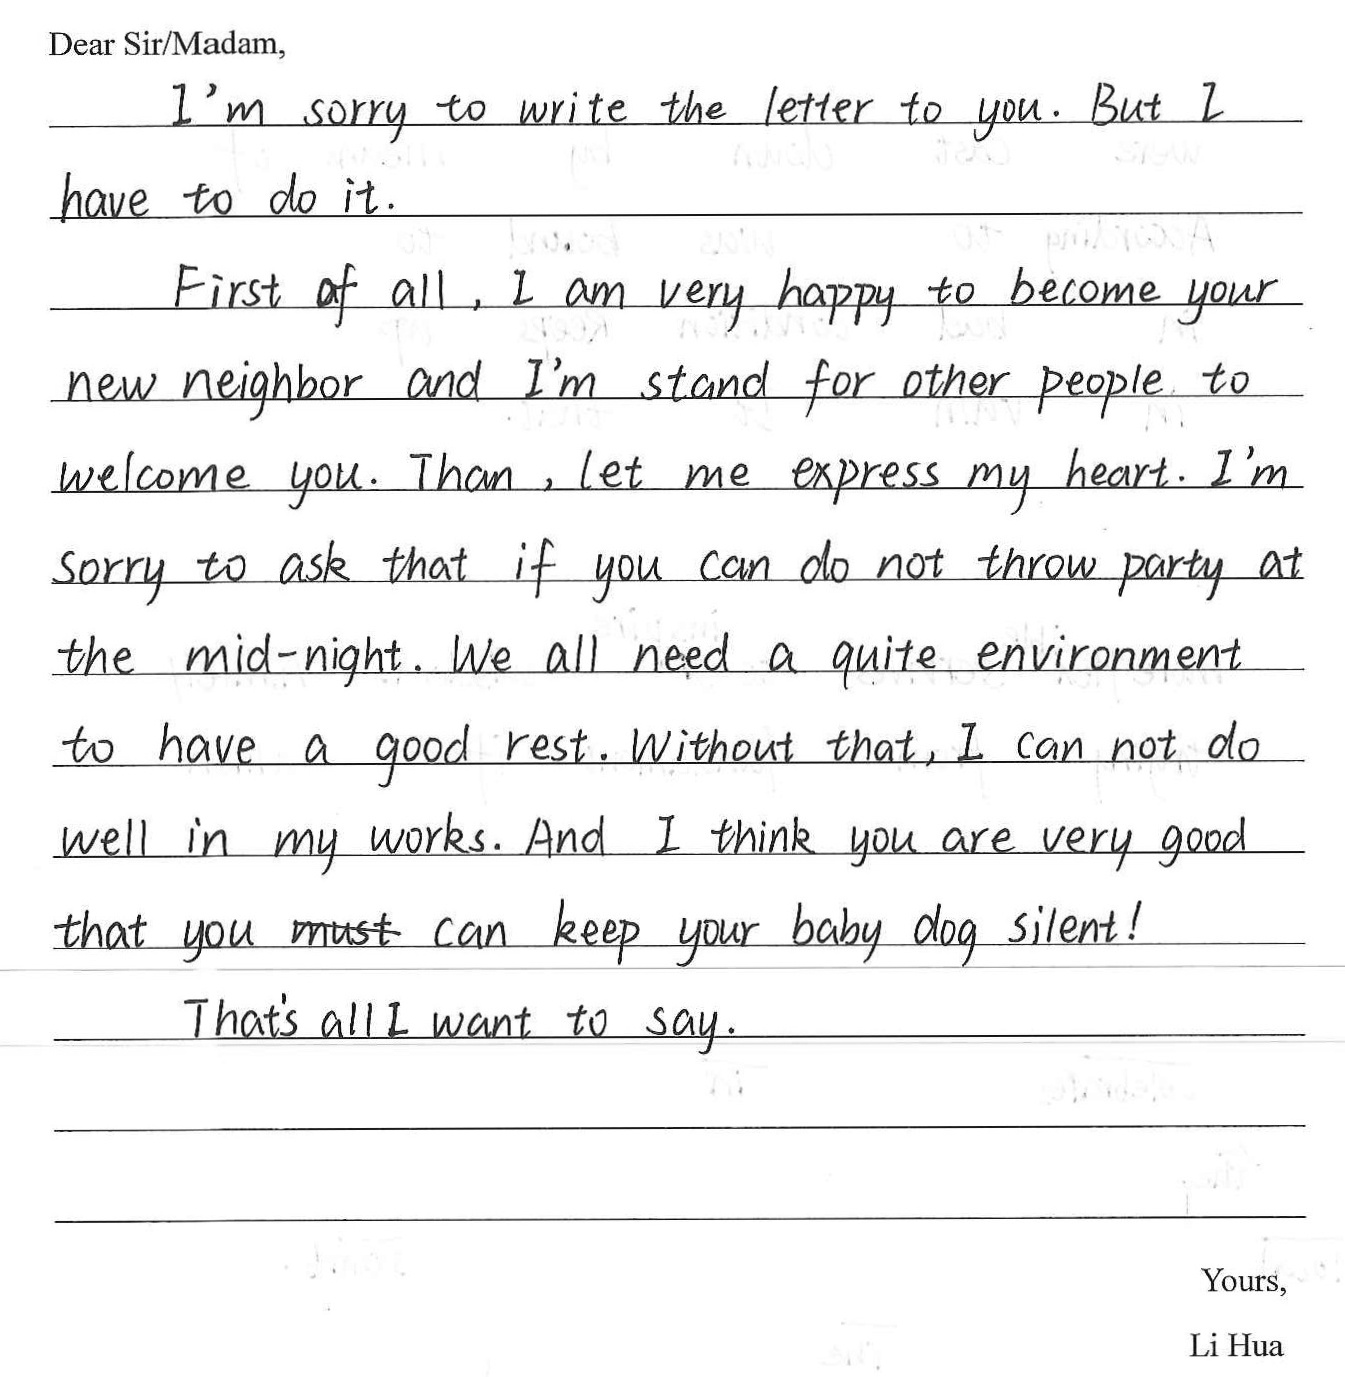 Dear Sir/Madam,
I'm sorry to write the letter to you. But I
have to do it.
First of all, I am very happy to become your
new neighbor and I'm stand for other people to
welcome you. Than, let me express my heart. I'm
sorry to ask that if you can do not throw party at
the mid-night. We all need a quite environment
to have a good rest. Without that, I can not do
well in my works. And I think you are very good
that you must can keep your baby dog silent!
That's all I want to say.
Yours,
Li Hua